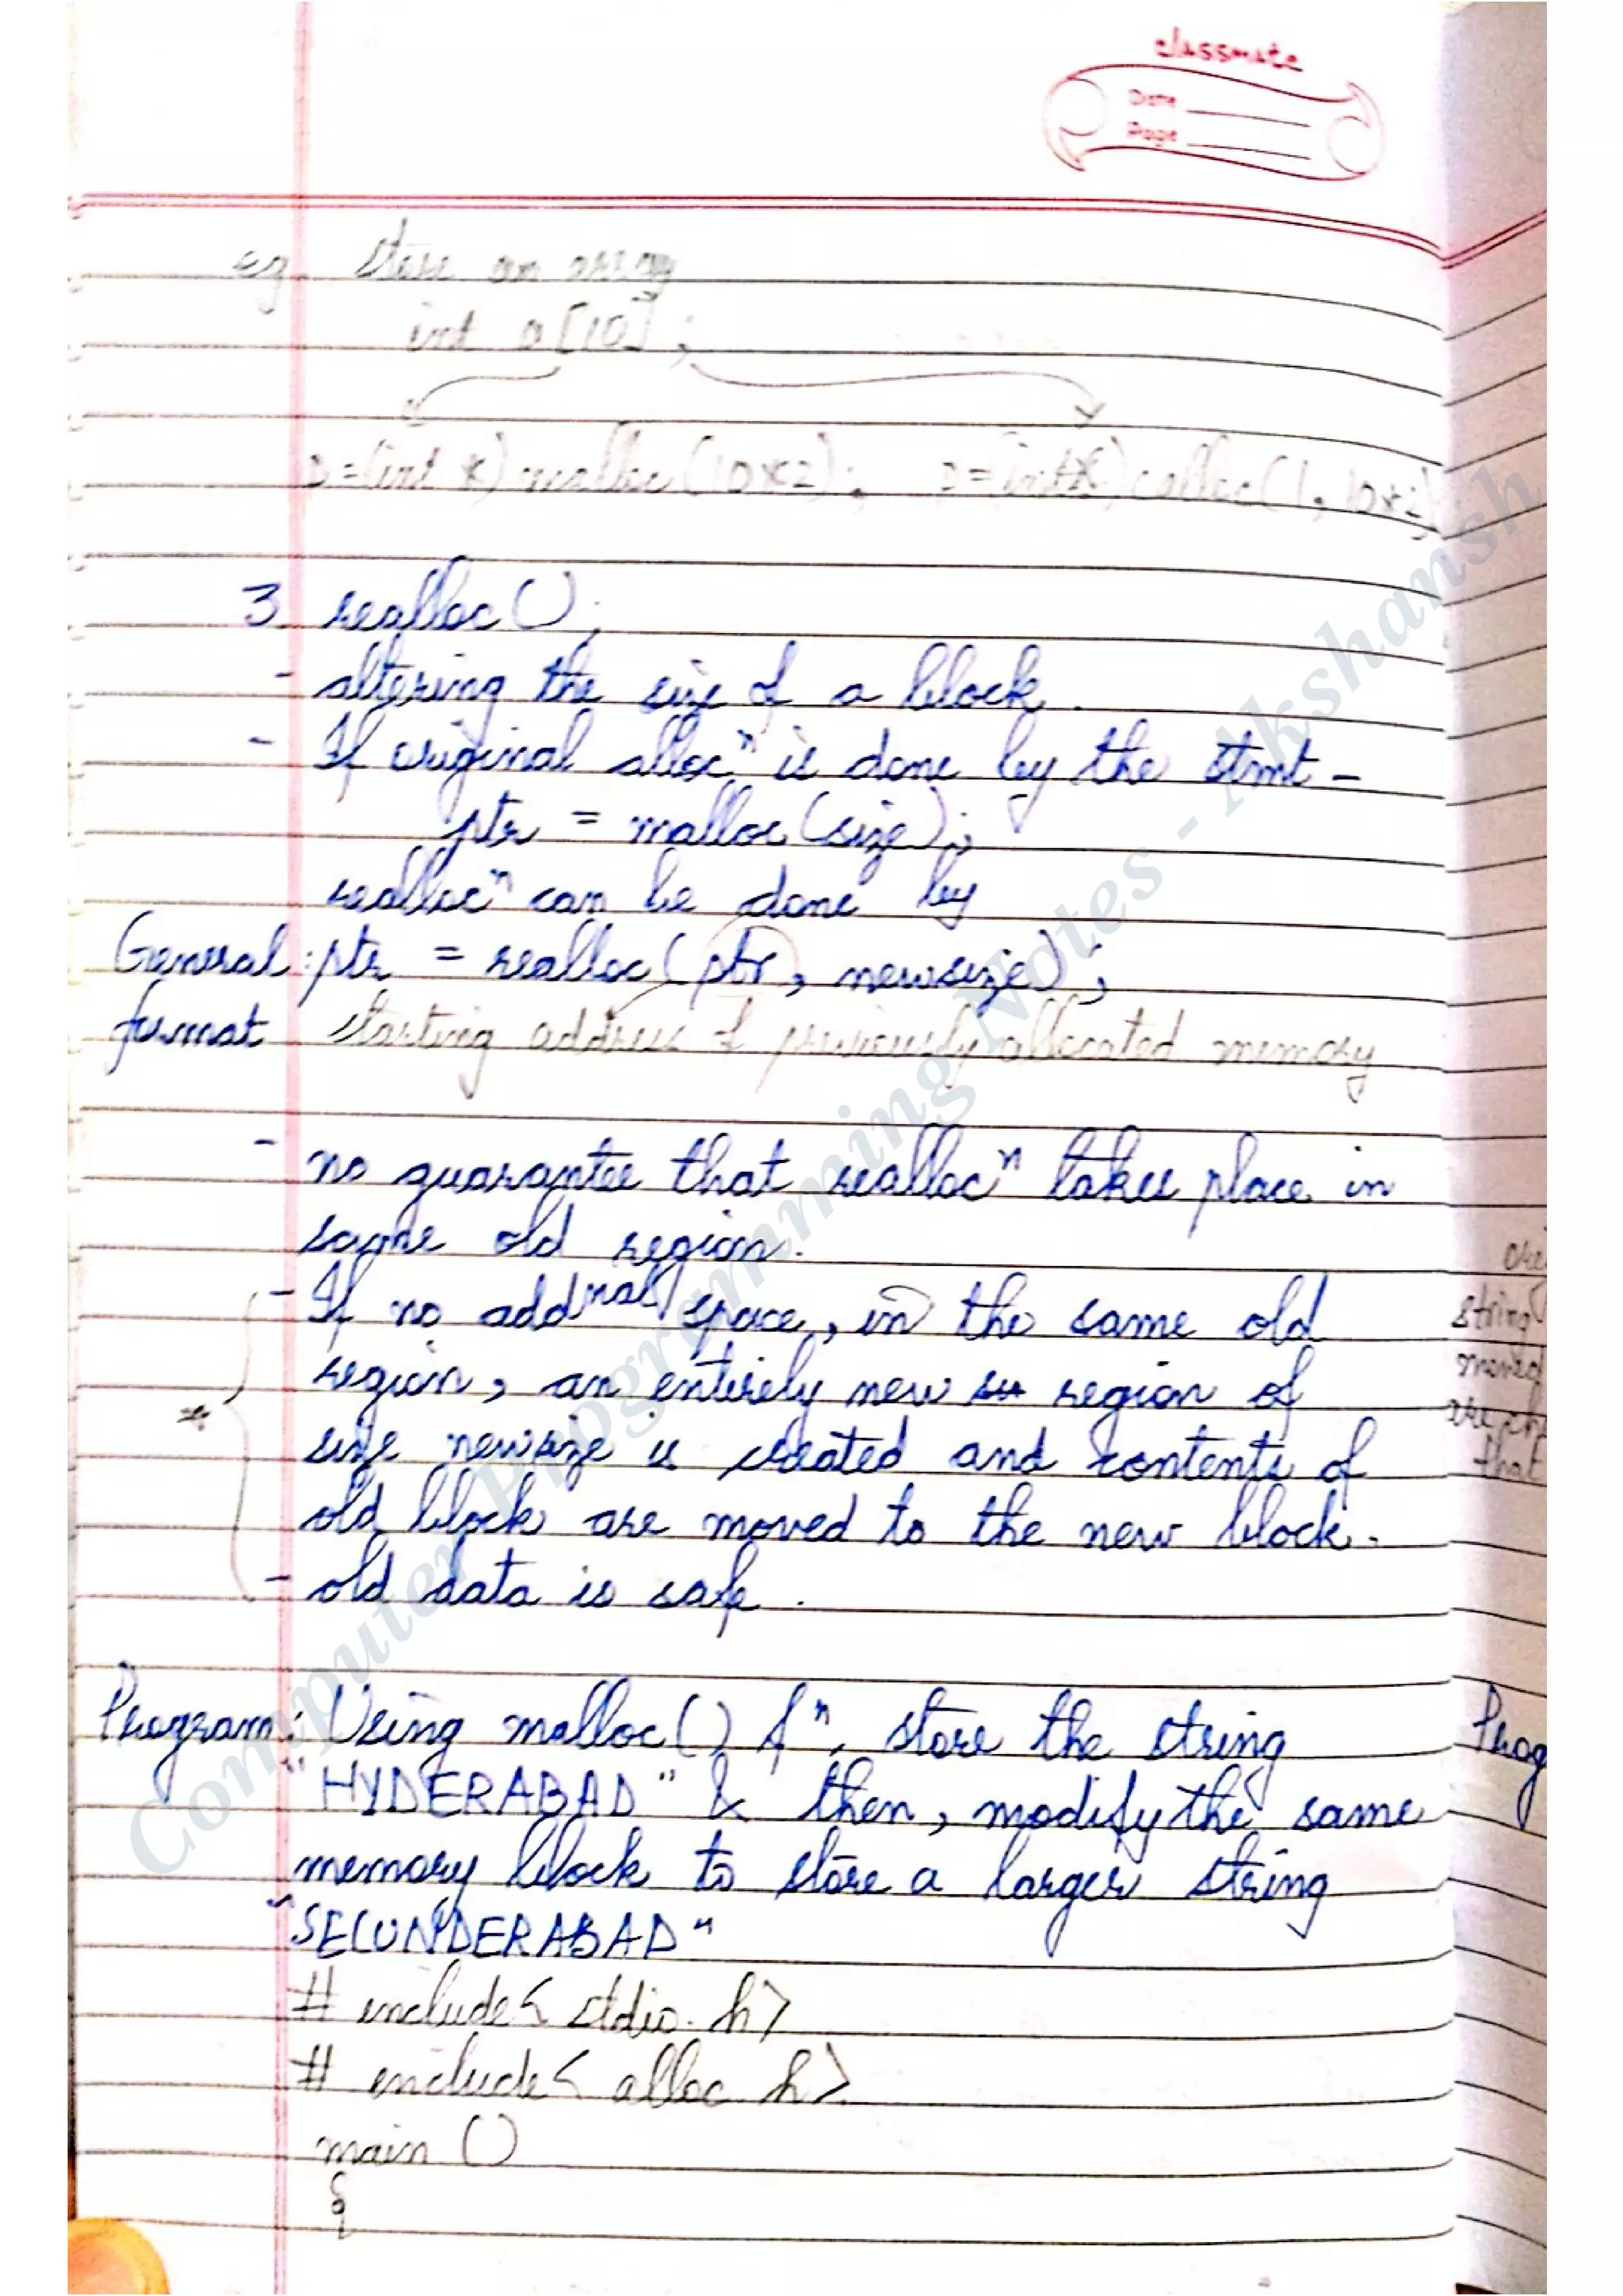 classmate
Date
Page
eg store an array
int a[10];
p=(int *) malloc(10*2); p=(int*) calloc(1, 10*2)
3. realloc();
- altering the size of a block.
- If original allocⁿ is done by the stmt -
ptr = malloc(size);
reallocⁿ can be done by
General : ptr = realloc(ptr, newsize);
format starting address of previously allocated memory
- no guarantee that reallocⁿ takes place in
same old region.
- If no addnal space, in the same old
region, an entirely new region of
size newsize is created and contents of
old block are moved to the new block.
- old data is safe.
Program: Using malloc() fⁿ, store the string
"HYDERABAD" & then, modify the same
memory block to store a larger string
"SECUNDERABAD"
# include< stdio.h>
# include< alloc.h>
main ()
{
string
moved
that
Prog
Computer Programming Notes - Akshansh